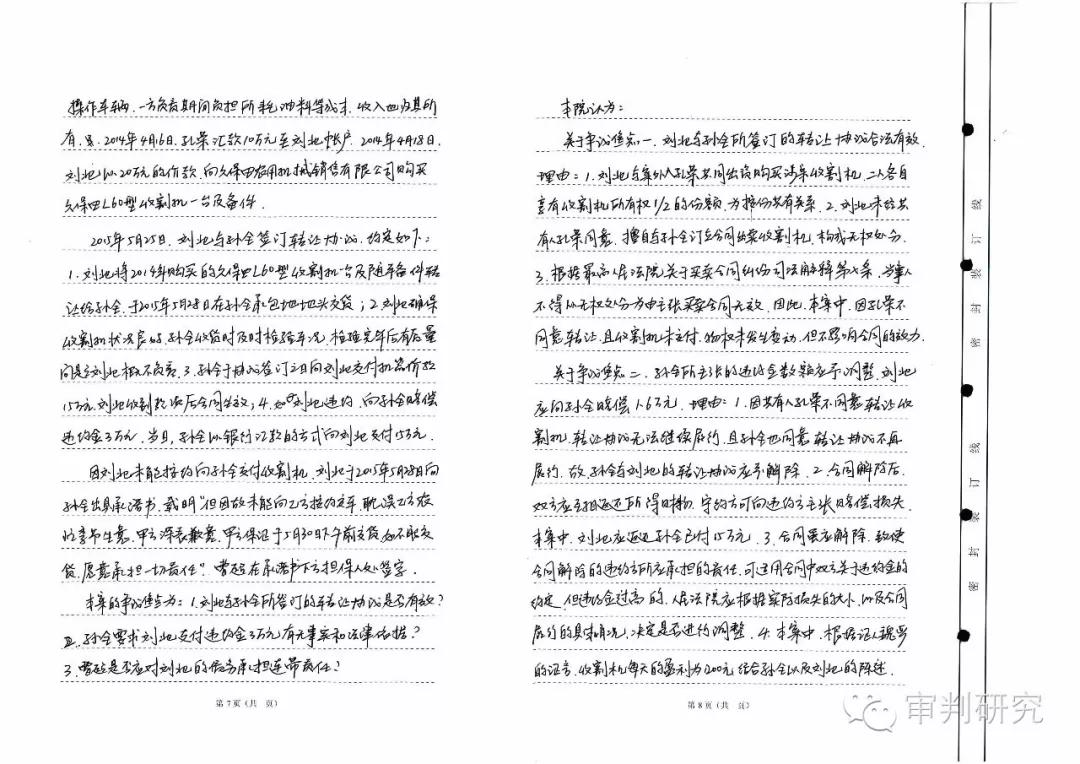 操作车辆,一方负责期间负担所耗油料等成本,收入也归其所
有。2014年4月6日,孔荣汇款10万元至刘北帐户。2014年4月18日,
刘北以20万元的价款向久保田农用机械销售有限公司购买
久保田L60型收割机一台及备件.
2015年5月25日,刘北与孙全签订转让协议,约定如下:
1.刘北将2014年购买的久保田L60型收割机一台及随车备件转
让给孙全,于2015年5月28日在孙全承包地地头交货;2.刘北确保
收割机状况良好,孙全收货时及时检验车况,检验完毕后有质量
问题刘北概不负责;3.孙全于协议签订之日向刘北支付机器价款
15万元,刘北收到款项后合同生效;4.如刘北违约,向孙全赔偿
违约金3万元.当日,孙全以银行汇款的方式向刘北支付15万元.
因刘北未能按约向孙全交付收割机,刘北于2015年5月28日向
孙全出具承诺书,载明“但因故未能向乙方按约交车,耽误乙方农
忙季节生意,甲方深表歉意,甲方保证于5月30日下午前交货,如不能交
货,愿意承担一切责任”.曹砼在承诺书下方担保人处签字.
本案的争议焦点为:1.刘北与孙全所签订的转让协议是否有效?
2.孙全要求刘北支付违约金3万元有无事实和法律依据?
3.曹砼是否应对刘北的债务承担连带责任?
第7页(共 页)
本院认为:
关于争议焦点一,刘北与孙全所签订的转让协议合法有效.
理由:1.刘北与案外人孔荣共同出资购买涉案收割机,二人各自
享有收割机所有权1/2的份额,为按份共有关系.2.刘北未经共
有人孔荣同意,擅自与孙全订立合同出卖收割机,构成无权处分.
3.根据最高人民法院关于买卖合同纠纷司法解释第三条,当事人
不得以无权处分为由主张买卖合同无效.因此,本案中,因孔荣不
同意转让,且收割机未交付,物权未发生变动,但不影响合同的效力.
关于争议焦点二,孙全所主张的违约金数额应予调整,刘北
应向孙全赔偿1.6万元.理由:1.因共有人孔荣不同意转让收
割机,转让协议无法继续履行,且孙全也同意转让协议不再
履行,故孙全与刘北的转让协议应予解除.2.合同解除后,
双方应互相返还所得财物,守约方可向违约方主张赔偿损失.
本案中,刘北应返还孙全已付15万元.3.合同虽应解除,致使
合同解除的违约方所应承担的责任,可适用合同中双方关于违约金的
约定,但违约金过高的,人民法院应根据实际损失的大小,以及合同
履行的具体情况,决定是否进行调整.4.本案中,根据证人魏罗
的证言,收割机每天的盈利为1200元,结合孙全以及刘北的陈述,
第8页(共 页)
密 封 装 订 线
密 封 装 订 线
审判研究